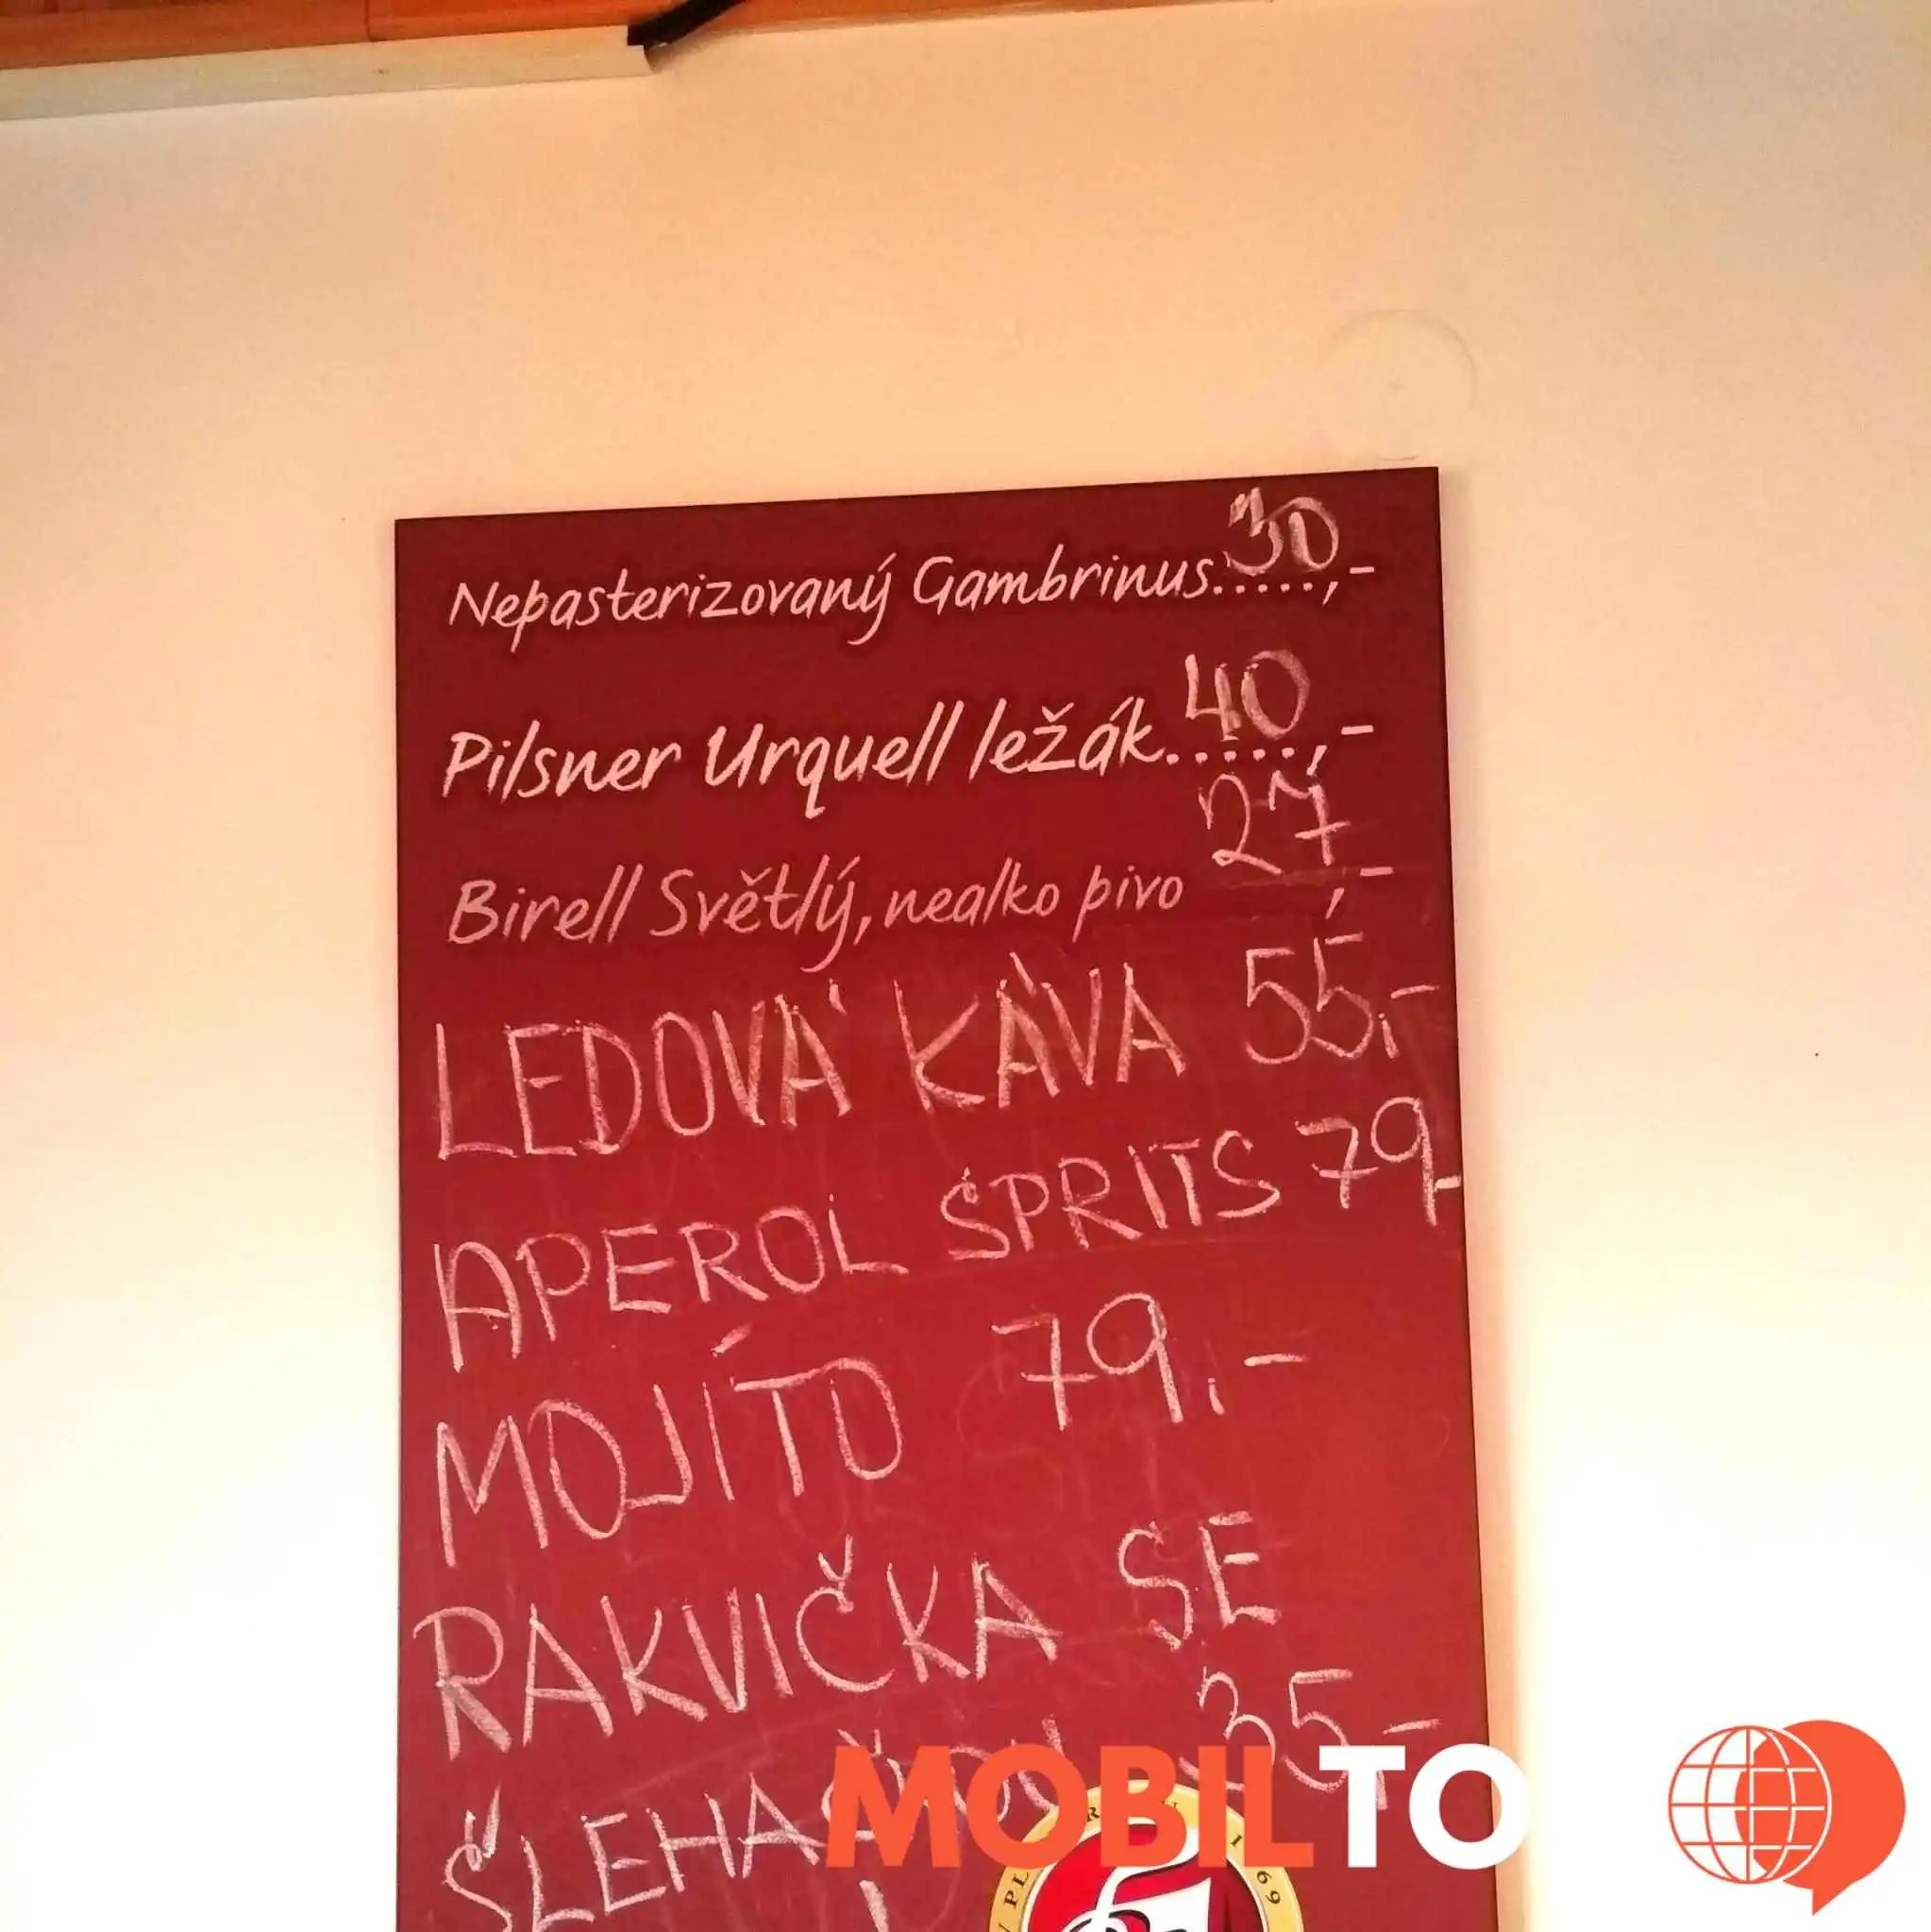 Nepasterizovaný Gambrinus.....30,-
Pilsner Urquell ležák.....40,-
Birell Světlý, nealko pivo 27,-
LEDOVÁ KÁVA 55,-
APEROL SPRITS 79,-
MOJÍTO 79,-
RAKVIČKA SE
35,-
MOBILTO